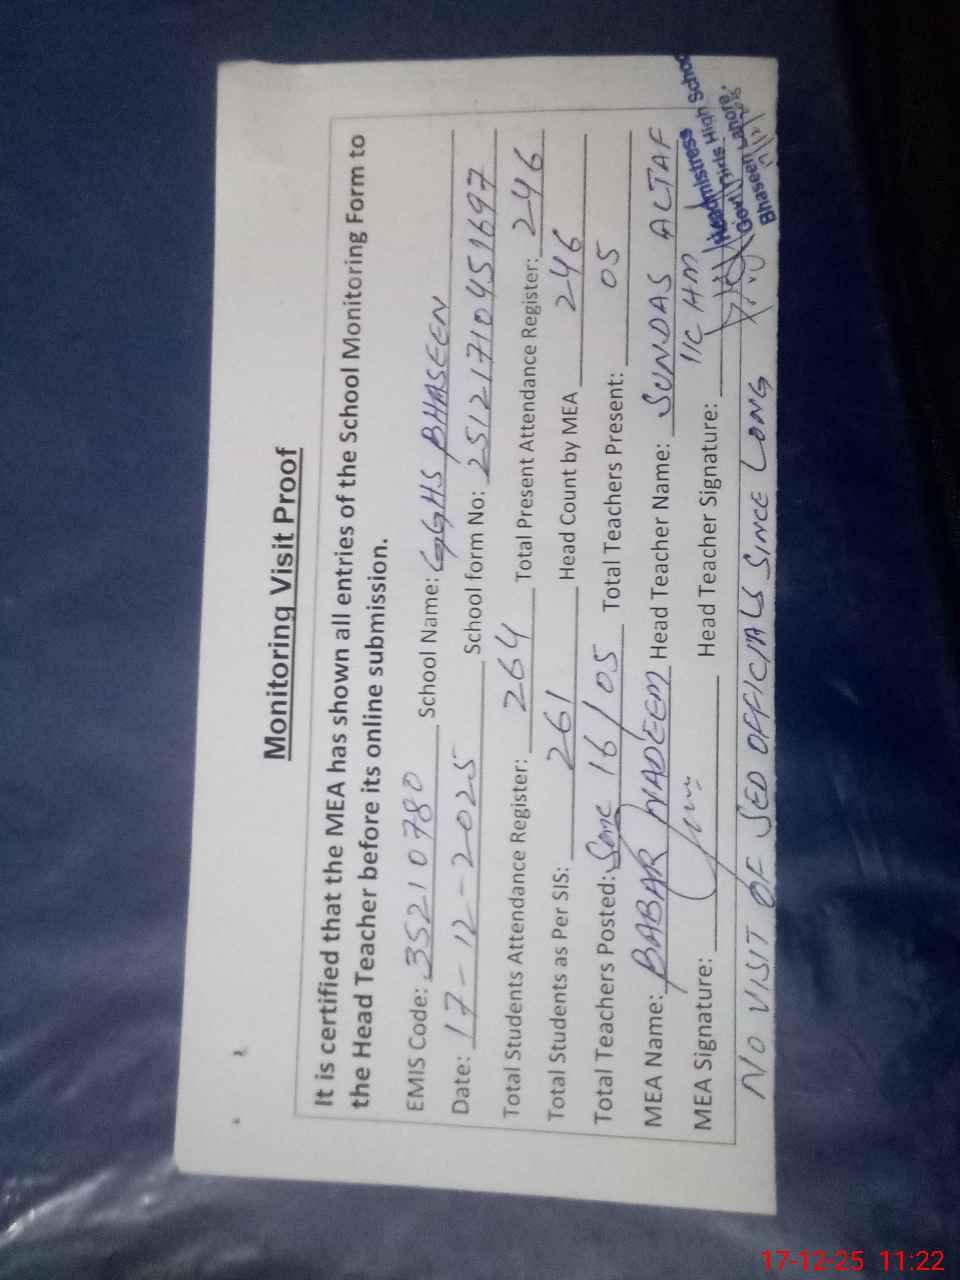 Monitoring Visit Proof
It is certified that the MEA has shown all entries of the School Monitoring Form to
the Head Teacher before its online submission.
EMIS Code: 35210780 School Name: GGHS BHASEEN
Date: 17-12-2025 School form No: 2512171045 1697
Total Students Attendance Register: 264 Total Present Attendance Register: 246
Total Students as Per SIS: 261 Head Count by MEA 246
Total Teachers Posted: Sanc 16/05 Total Teachers Present: 05
MEA Name: BABAR NADEEM Head Teacher Name: SUNDAS ALTAF
I/C HM
MEA Signature: Head Teacher Signature:
Headmistress
Govt. Girls High School
Bhaseen Lahore.
NO VISIT OF SED OFFICIALS SINCE LONG
17-12-25 11:22